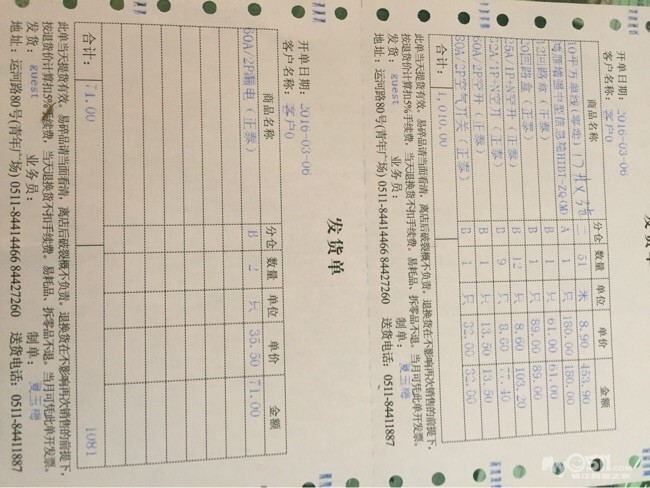 发货单
开单日期: 2016-03-06
客户名称: 客户0
商品名称 分仓 数量 单位 单价 金额
51 米 8.90 453.90
A 1 只 180.00 180.00
B 1 只 61.00 61.00
B 1 只 89.00 89.00
B 12 只 8.60 103.20
B 9 只 8.60 77.40
60A/2P空开(正泰) B 1 只 13.50 13.50
60A/2P空气开关(正泰) B 1 只 32.00 32.00
合计: 1,010.00
此单当天提货有效。易碎品请当面看清,离店后破裂概不负责。退换货在不影响再次销售的前提下,
按退货价计算扣5%手续费,当天退换货不扣手续费。易耗品、拆零品不退。当月可凭此单开发票。
发货: guest 业务员: 制单:
地址: 运河路80号(青年广场) 0511-84414466 84427260 送货电话: 0511-84411887
发货单
开单日期: 2016-03-06
客户名称: 客户0
商品名称 分仓 数量 单位 单价 金额
60A/2P漏电(正泰) B 2 只 35.50 71.00
合计: 71.00 1081
此单当天提货有效。易碎品请当面看清,离店后破裂概不负责。退换货在不影响再次销售的前提下,
按退货价计算扣5%手续费,当天退换货不扣手续费。易耗品、拆零品不退。当月可凭此单开发票。
发货: guest 业务员: 制单:
地址: 运河路80号(青年广场) 0511-84414466 84427260 送货电话: 0511-84411887